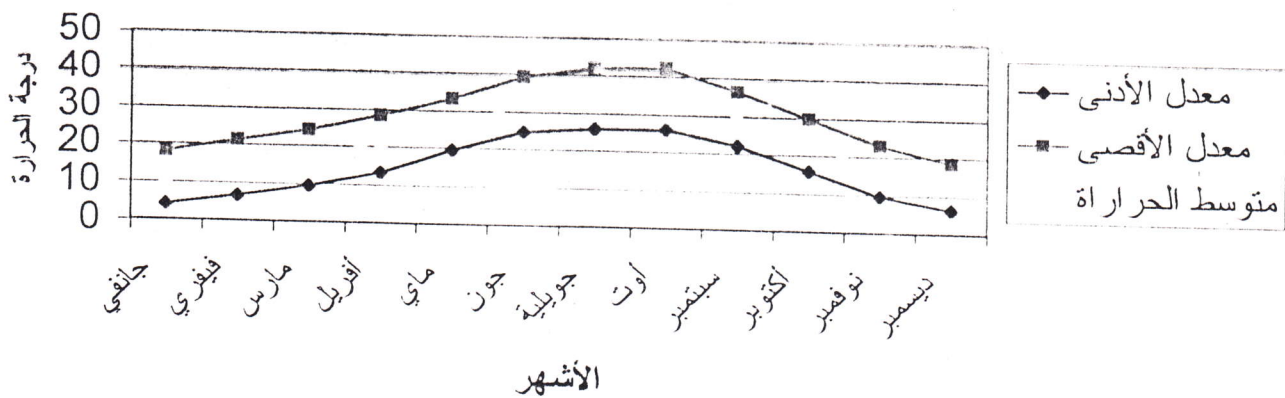 50
40
30
20
10
0
درجة الحرارة
جانفي
فيفري
مارس
أفريل
ماي
جون
جويلية
أوت
سبتمبر
أكتوبر
نوفمبر
ديسمبر
الأشهر
معدل الأدنى
معدل الأقصى
متوسط الحراراة